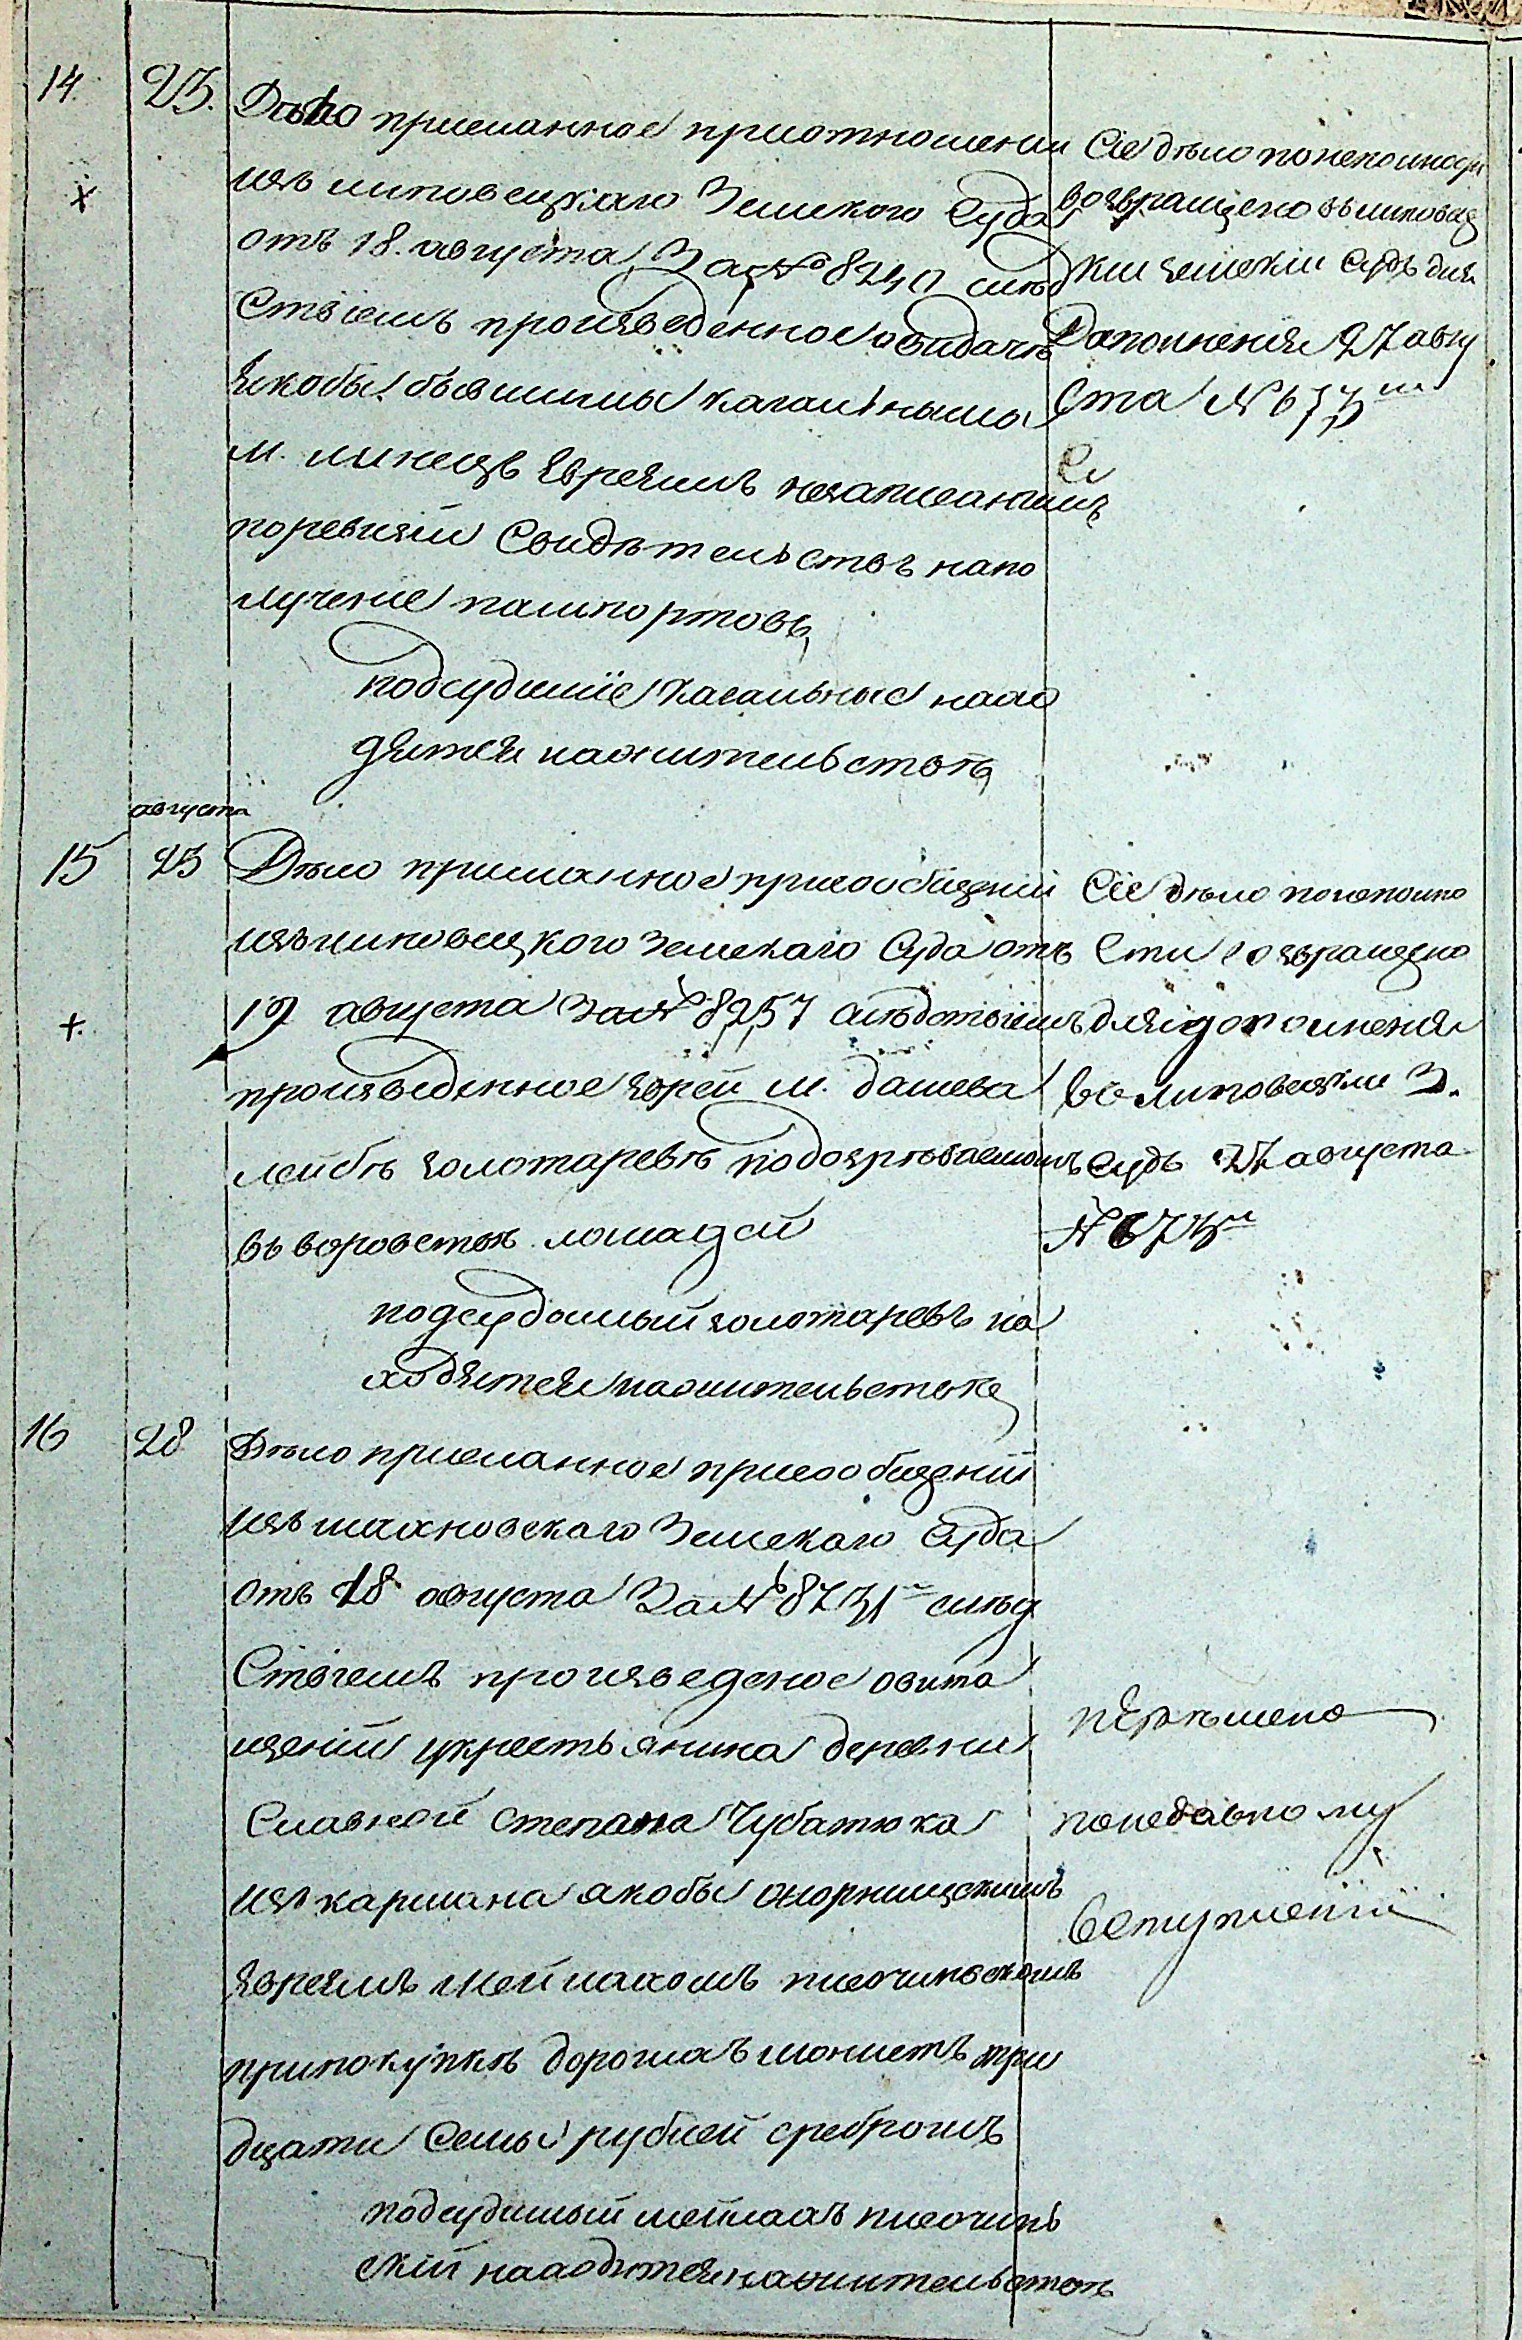 14.
23.
Дѣло присланное приотношении
изъ липовецкаго Земского Суда
отъ 18. августа За № 8240 слѣд
Ствіемъ произведенное овидачѣ
якобы бывшимы кагальными
м. линецъ Евреямъ незаписаннымъ
поревизіи Свидѣтельствъ напо
лучение пашпортовъ
подсудиміе кагальные нахо
дятся нажительствѣ
Сіе дѣло понеполност
возвращено въ липовец
кіи земскіи Судъ для
Дополненія 27 авгу
ста № 673
августа
15
23
Дѣло присланное присообщеніи
изъ липовецкого Земскаго Суда отъ
19 августа За № 8257 слѣдствіемъ
произведенное Еврей м. дашева
лейбѣ золотаревѣ подозрѣваемомъ
въ воровствѣ лошадей
подсудимый золотаревъ на
ходятся нажительствѣ
Сіе дѣло понеполно
сти возвращено
для дополненія
въ липовецкіи З.
Судъ 27 августа
№ 673
16
28
Дѣло присланное присообщеніи
изъ махновскаго Земскаго Суда
отъ 18 августа За № 8731 слѣд
Ствіемъ произведеное овита
щеніи укрестьянина деревни
Славной степана Чубатюка
изъ кармана якобы
Евреямъ мейлахомъ песочинскомъ
припокупкѣ монистъ три
дцати Семи рублей сребромъ
подсудимый мейлахъ песочин
скій находится нажительствѣ
нерѣшено
понедавному
вступленіи